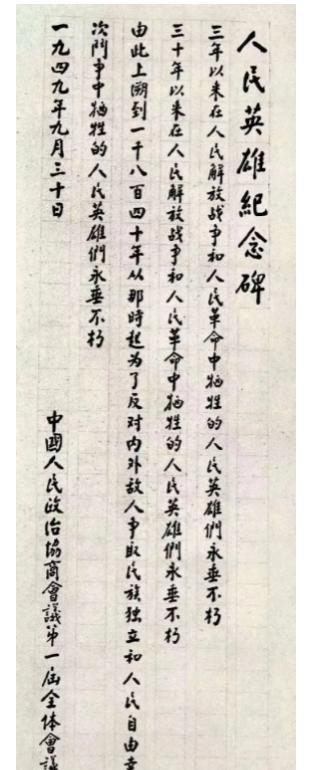 人民英雄紀念碑
三年以来在人民解放战争和人民革命中牺牲的人民英雄們永垂不朽
三十年以来在人民解放战争和人民革命中牺牲的人民英雄們永垂不朽
由此上溯到一千八百四十年从那時起为了反对内外敌人争取民族独立和人民自由幸
次鬥争中牺牲的人民英雄們永垂不朽
一九四九年九月三十日
中國人民政治協商會議第一届全体會議